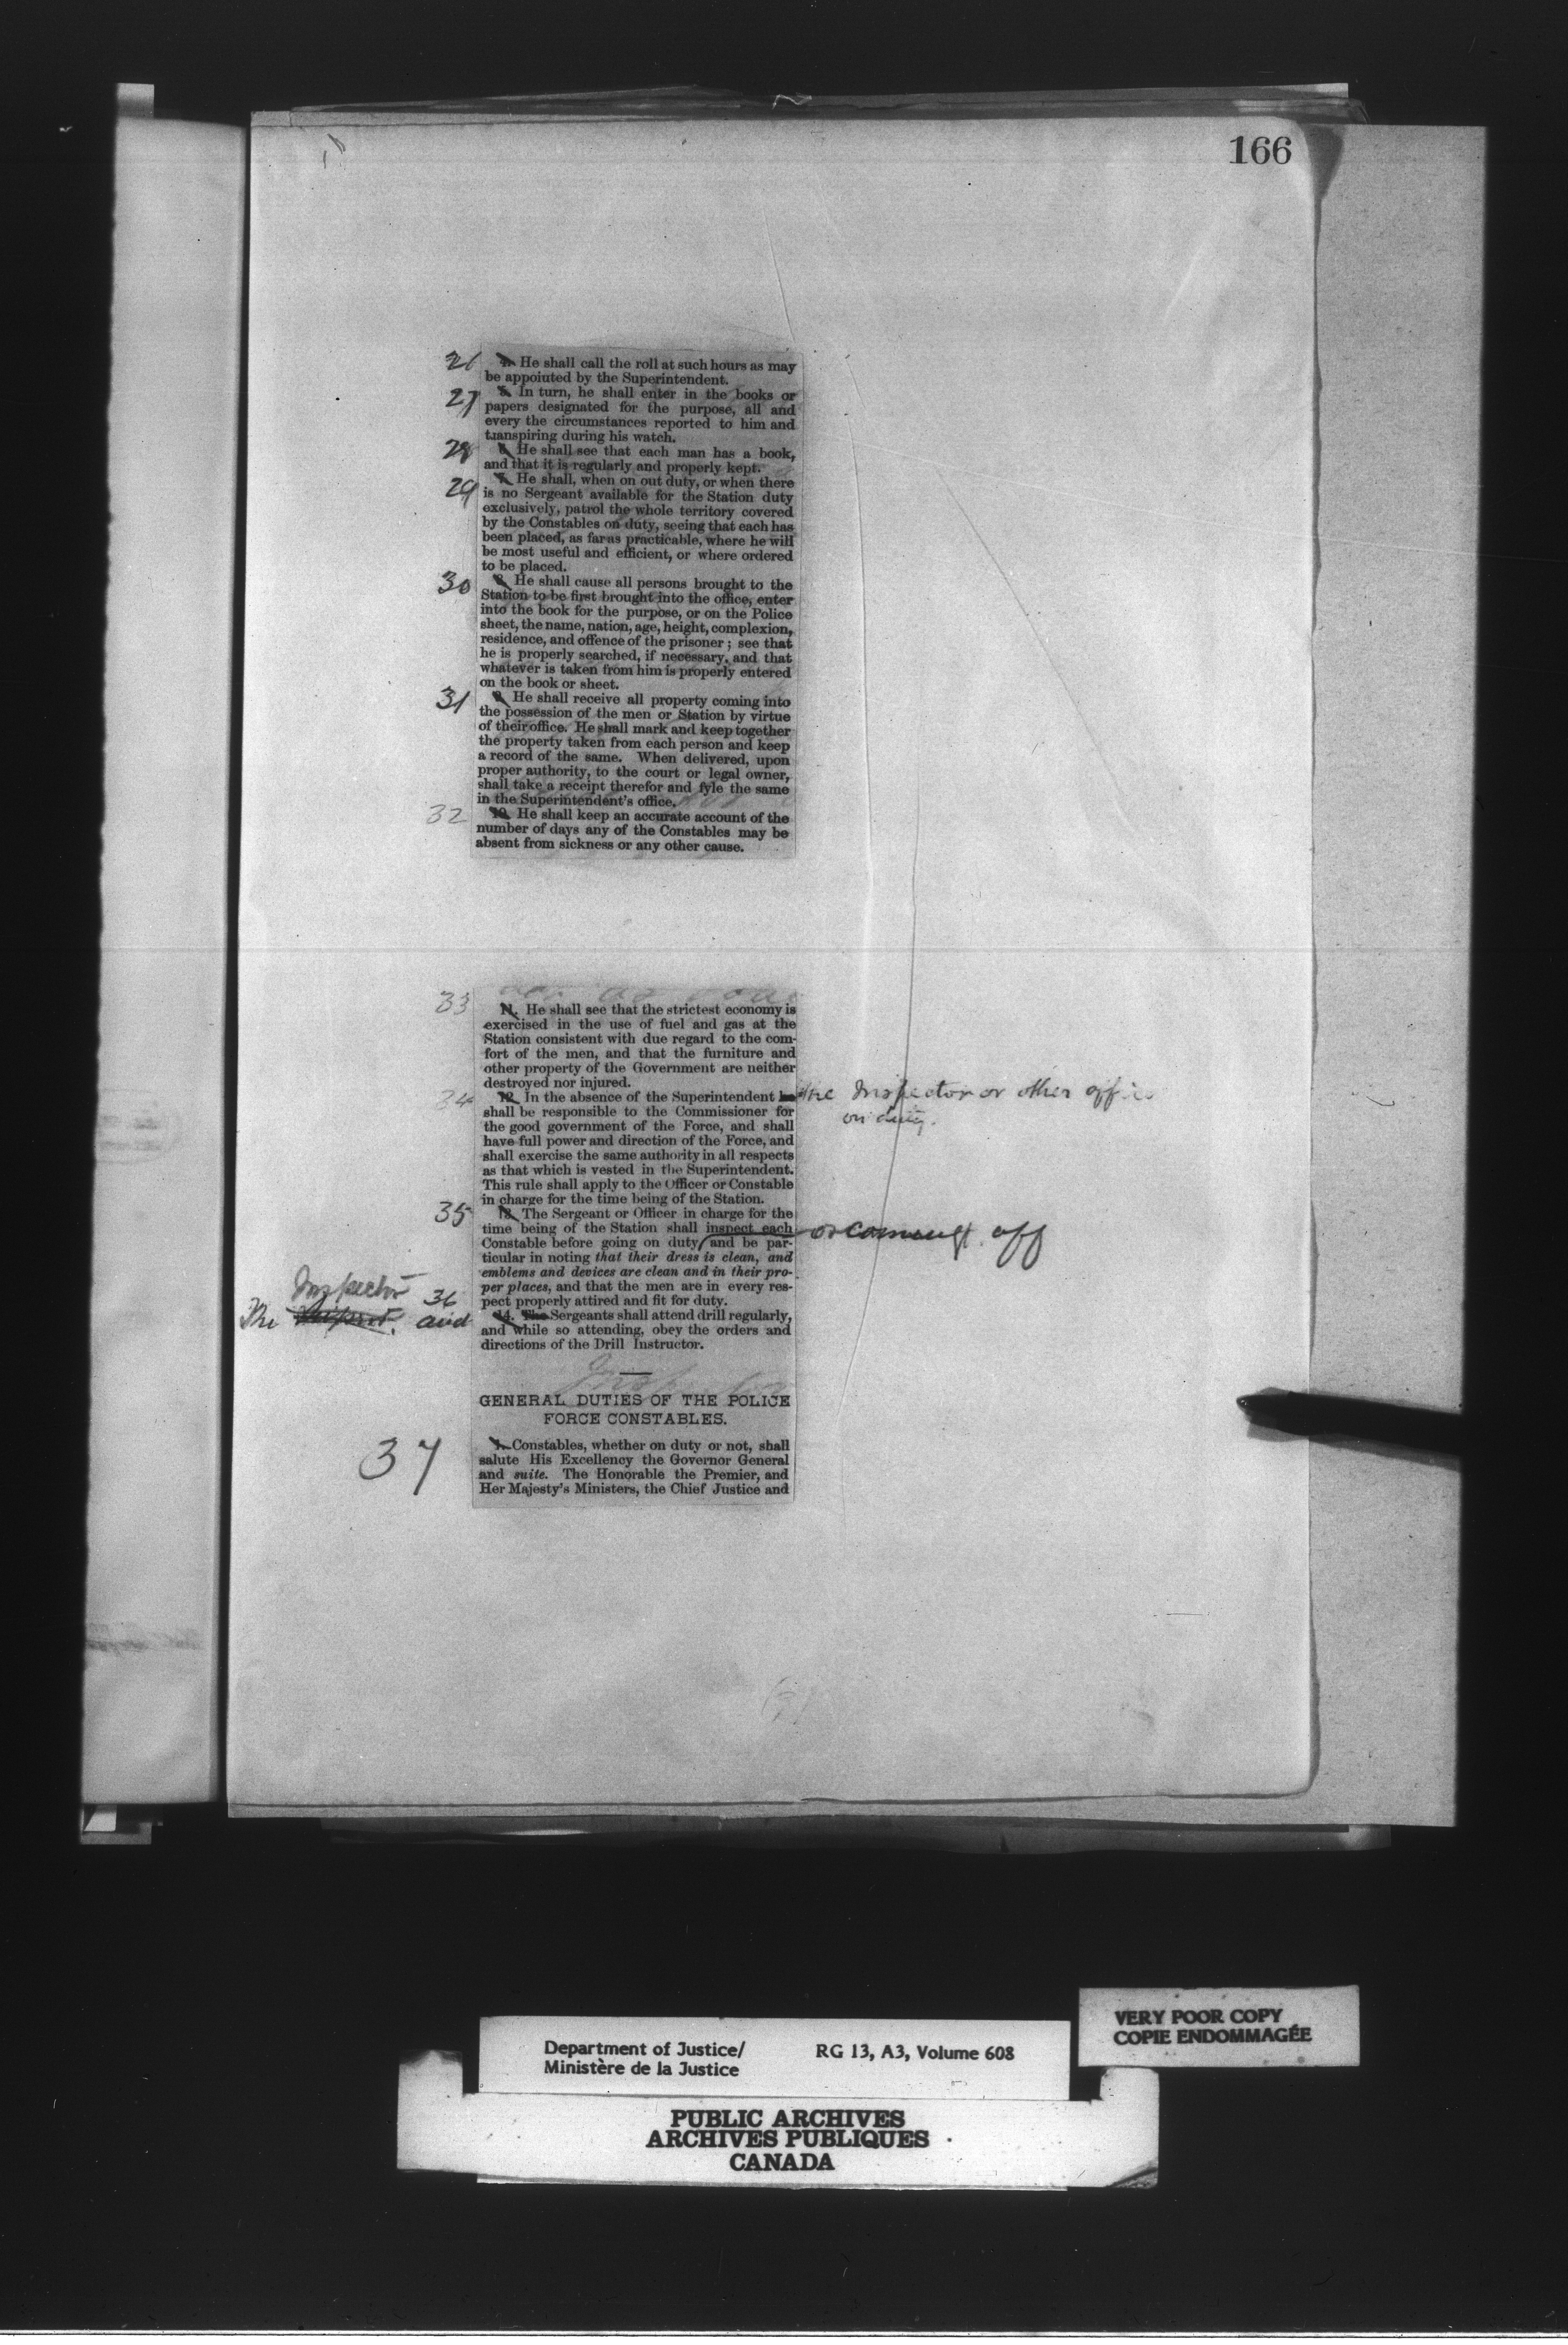 166
26 4. He shall call the roll at such hours as may
be appointed by the Superintendent.
27 5. In turn, he shall enter in the books or
papers designated for the purpose, all and
every the circumstances reported to him and
transpiring during his watch.
28 6. He shall see that each man has a book,
and that it is regularly and properly kept.
29 7. He shall, when on out duty, or when there
is no Sergeant available for the Station duty
exclusively, patrol the whole territory covered
by the Constables on duty, seeing that each has
been placed, as far as practicable, where he will
be most useful and efficient, or where ordered
to be placed.
30 8. He shall cause all persons brought to the
Station to be first brought into the office, enter
into the book for the purpose, or on the Police
sheet, the name, nation, age, height, complexion,
residence, and offence of the prisoner; see that
he is properly searched, if necessary, and that
whatever is taken from him is properly entered
on the book or sheet.
31 9. He shall receive all property coming into
the possession of the men or Station by virtue
of their office. He shall mark and keep together
the property taken from each person and keep
a record of the same. When delivered, upon
proper authority, to the court or legal owner,
shall take a receipt therefor and fyle the same
in the Superintendent's office.
32 10. He shall keep an accurate account of the
number of days any of the Constables may be
absent from sickness or any other cause.
33 11. He shall see that the strictest economy is
exercised in the use of fuel and gas at the
Station consistent with due regard to the com-
fort of the men, and that the furniture and
other property of the Government are neither
destroyed nor injured.
34 12. In the absence of the Superintendent he the Inspector or other officer
on duty.
shall be responsible to the Commissioner for
the good government of the Force, and shall
have full power and direction of the Force, and
shall exercise the same authority in all respects
as that which is vested in the Superintendent.
This rule shall apply to the Officer or Constable
in charge for the time being of the Station.
35 13. The Sergeant or Officer in charge for the
time being of the Station shall inspect each or coming off
Constable before going on duty and be par-
ticular in noting that their dress is clean, and
emblems and devices are clean and in their pro-
per places, and that the men are in every res-
pect properly attired and fit for duty.
Inspector 36
The and
14. The Sergeants shall attend drill regularly,
and while so attending, obey the orders and
directions of the Drill Instructor.
GENERAL DUTIES OF THE POLICE
FORCE CONSTABLES.
37 1. Constables, whether on duty or not, shall
salute His Excellency the Governor General
and suite. The Honorable the Premier, and
Her Majesty's Ministers, the Chief Justice and
VERY POOR COPY
COPIE ENDOMMAGÉE
Department of Justice/ RG 13, A3, Volume 608
Ministère de la Justice
PUBLIC ARCHIVES
ARCHIVES PUBLIQUES
CANADA